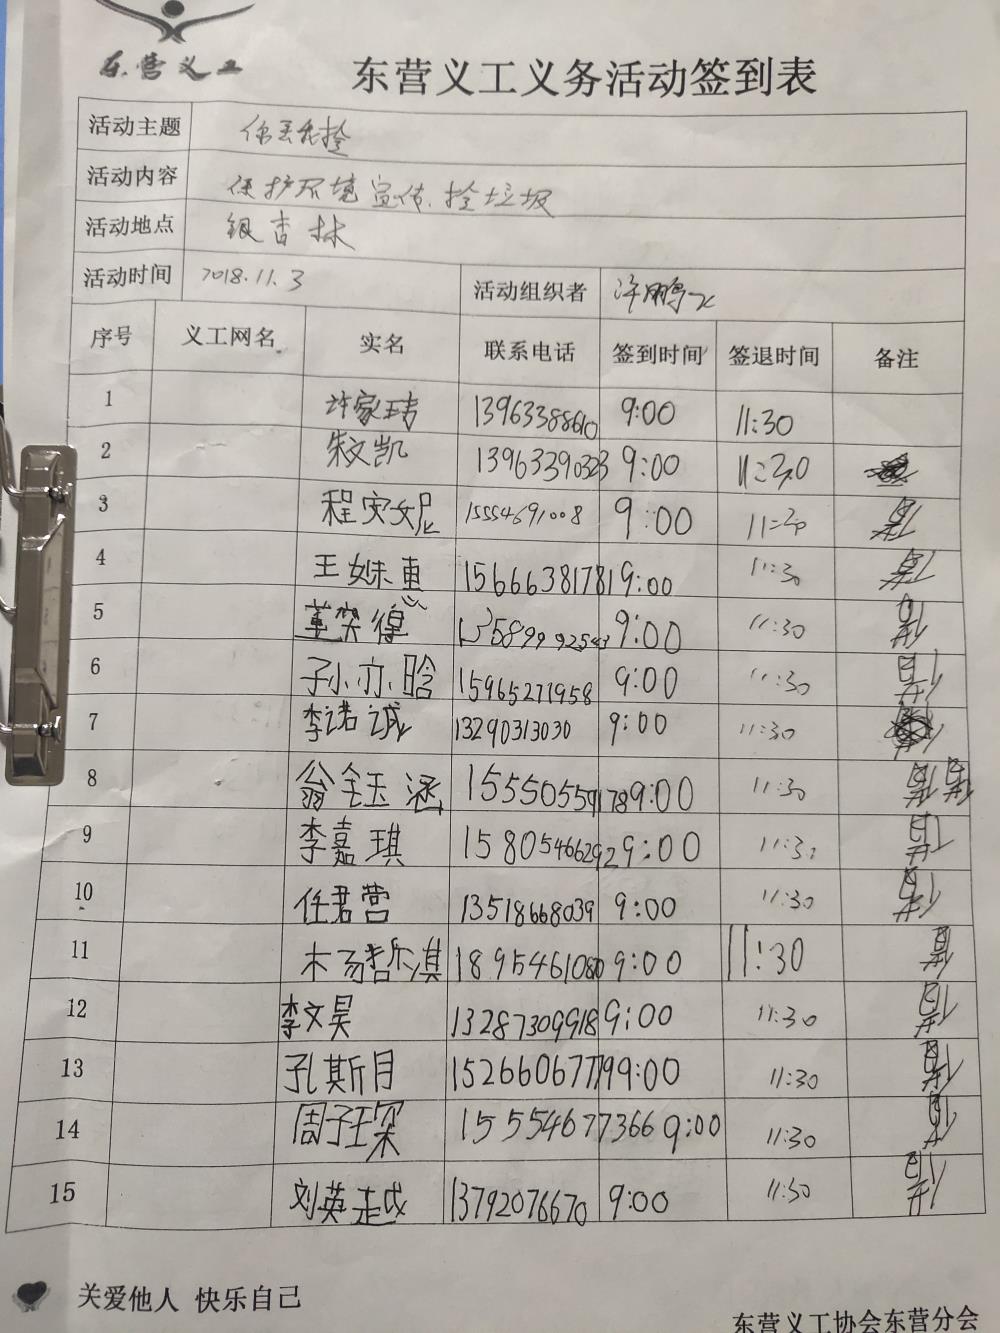 东营义工
东营义工义务活动签到表
活动主题 你丢我捡
活动内容 保护环境宣传、捡垃圾
活动地点 银杏林
活动时间 2018.11.3 活动组织者 许鹏飞
序号 义工网名 实名 联系电话 签到时间 签退时间 备注
1 许家玮 13963388610 9:00 11:30
2 朱文凯 13963390323 9:00 11:30
3 程安妮 15554691008 9:00 11:30
4 王姝惠 15666381781 9:00 11:30
5 9:00 11:30
6 孙亦晗 15965271958 9:00 11:30
7 李诺诚 13290313030 9:00 11:30
8 翁钰涵 15550559178 9:00 11:30
9 李嘉琪 15805466292 9:00 11:30
10 任君营 13518668039 9:00 11:30
11 杨哲淇 18954610800 9:00 11:30
12 李文昊 13287309918 9:00 11:30
13 孔斯月 15266067719 9:00 11:30
14 周子琛 15554677366 9:00 11:30
15 刘英越 13792076670 9:00 11:30
关爱他人 快乐自己
东营义工协会东营分会